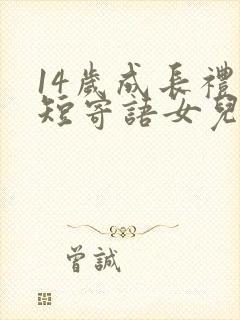 14歲成長禮
短寄語女兒
曾誠